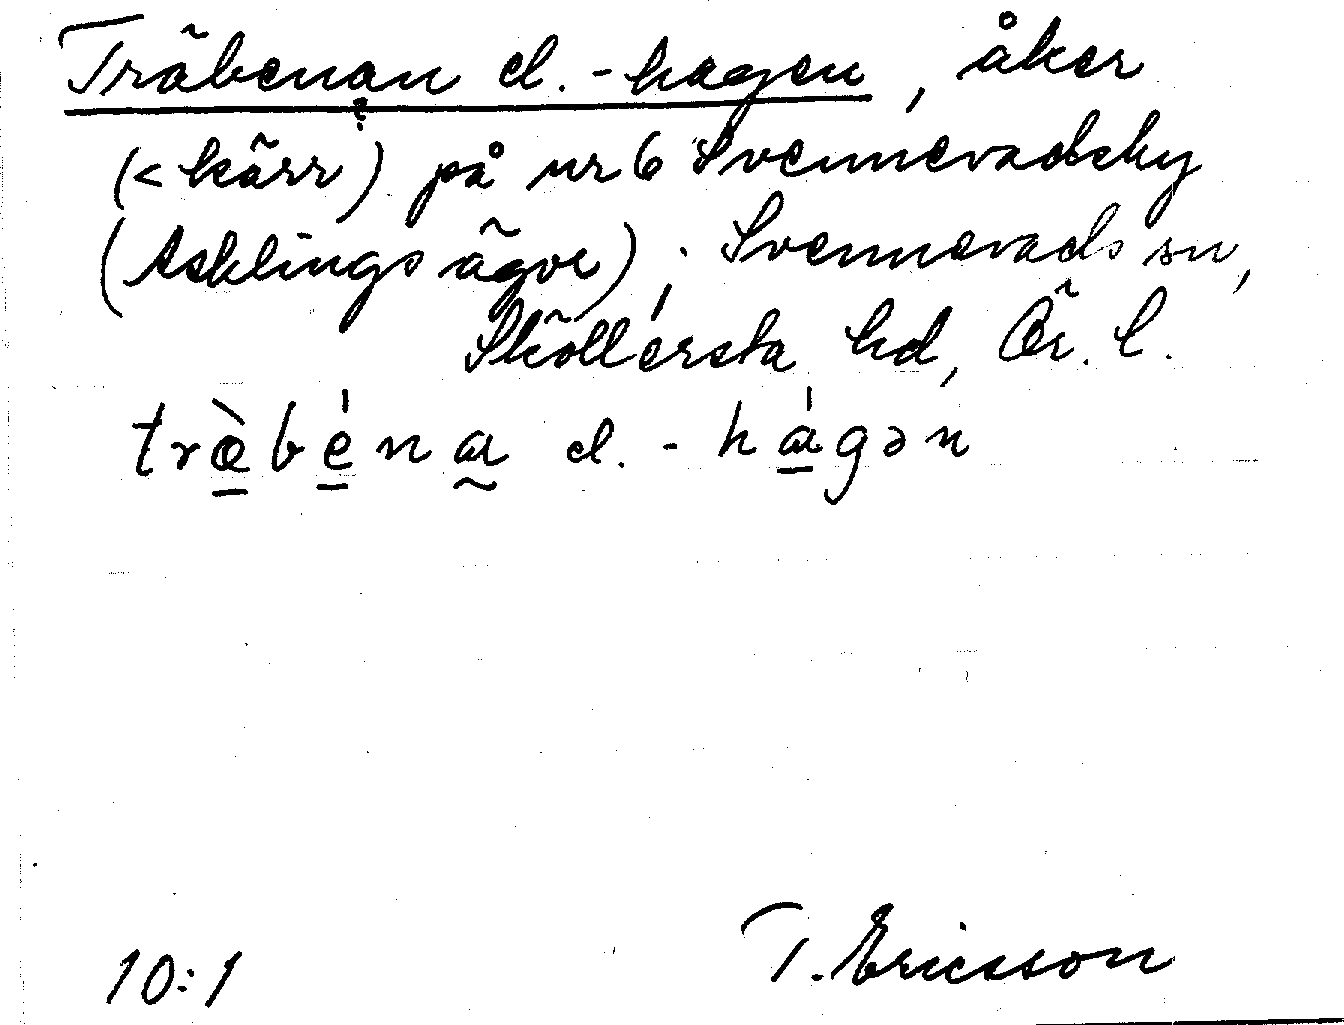 Träbenan el. -hagen, åker
(< kärr) på nr 6 Svennevadsby
(Asklings ägor), Svennevads sn,
Sköllersta hd, Ör. l.
træ̀béna el. -hágən
10:1 T. Ericsson